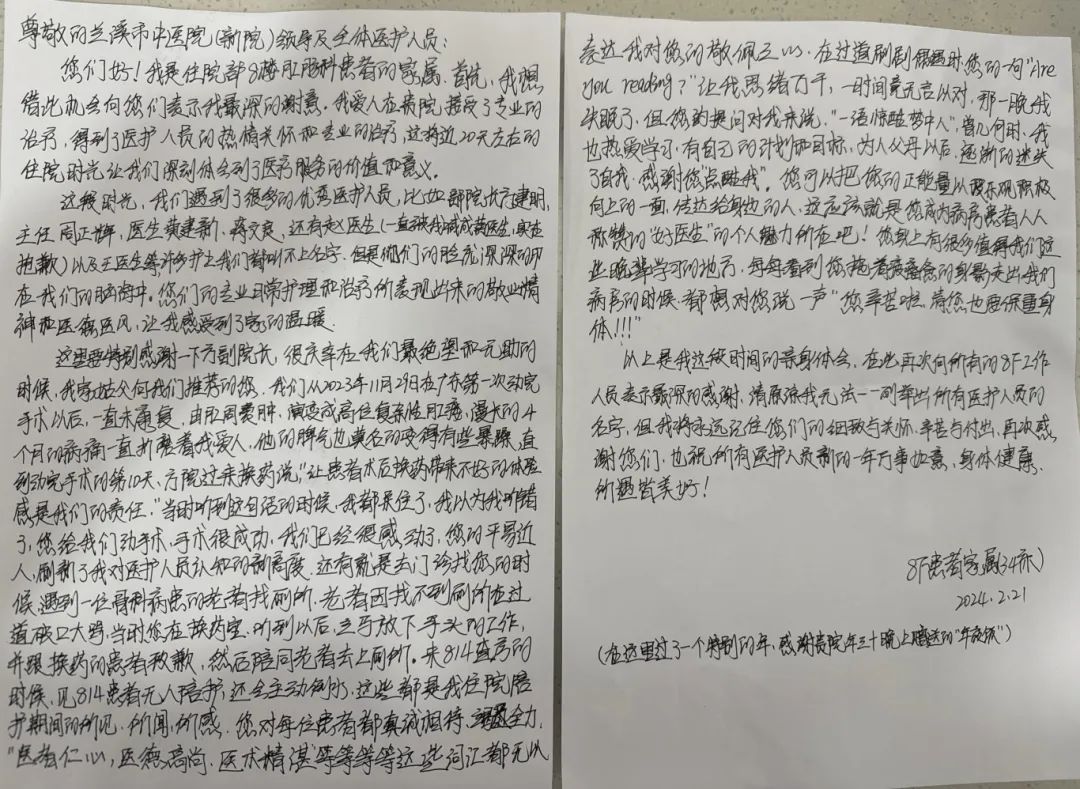 尊敬的兰溪市中医院(新院)领导及全体医护人员:
您们好!我是住院部8楼肛肠科患者的家属.首先,我想
借此机会向您们表示我最深的谢意.我爱人在病院接受了专业的
治疗,得到了医护人员的热情关怀和专业的治疗,这将近20天左右的
住院时光让我们深刻体会到了医疗服务的价值和意义.
这段时光,我们遇到了很多的优秀医护人员,比如副院长方建明,
主任周正辉,医生黄建新,蒋文良,还有赵医生(一直被我喊成黄医生,实在
抱歉)以及王医生等许多护士我们都叫不上名字.但是他们的脸就深深的印
在我们的脑海中.您们的专业日常护理和治疗所表现出来的敬业精
神和医德医风,让我感受到了家的温暖.
这里要特别感谢一下方副院长,很庆幸在我们最绝望和无助的
时候,我家姑父向我们推荐的您.我们从2023年11月29日在广东第一次动完
手术以后,一直未康复,由肛周囊肿,演变成高位复杂性肛瘘,漫长的4
个月的病痛一直折磨着我爱人,他的脾气也莫名的变得有些暴躁,直
到动完手术的第10天,方院过来换药说,"让患者术后换药带来不好的体验
感是我们的责任."当时听到这句话的时候,我都呆住了,我以为我听错
了,您给我们动手术,手术很成功,我们已经很感动了,您的平易近
人,刷新了我对医护人员认知的新高度.还有就是去门诊找您的时
候,遇到一位骨科病患的老者找厕所,老者因找不到厕所在过
道破口大骂,当时您在换药室,听到以后,立马放下手头的工作,
并跟换药的患者致歉,然后陪同老者去上厕所.来814查房的
时候,见814患者无人陪护,还会主动倒水,这些都是我住院陪
护期间的所见.所闻,所感.您对每位患者都真诚相待,全力,
"医者仁心,医德高尚.医术精湛"等等等等这些词汇都无以
表达我对您的敬佩之心.在过道刷剧时,您的一句"Are
you reading?"让我思绪万千,一时间竟无言以对,那一晚我
失眠了,但您的提问对我来说,"一语惊醒梦中人",曾几何时,我
也热爱学习,有自己的计划和目标,为人父母以后,逐渐的迷失
了自我.感谢您点醒我".您可以把您的正能量以及乐观积极
向上的一面,传达给身边的人,这应该就是您成为病房患者人人
称赞的"好医生"的个人魅力所在吧!您身上有很多值得我们这
些晚辈学习的地方.每每看到您拖着疲惫的身影走出我们
病房的时候,都想对您说一声"您辛苦啦,请您也要保重身
体!!!"
以上是我这段时间的亲身体会,在此再次向所有的8F工作
人员表示最深的感谢,请原谅我无法一一列举出所有医护人员的
名字,但我将永远记住您们的细致与关怀.辛苦与付出,再次感
谢您们,也祝所有医护人员新的一年万事如意、身体健康、
所遇皆美好!
8F患者家属(34床)
2024.2.21
(在这里过了一个特别的年,感谢贵院年三十晚上赠送的"年夜饭")